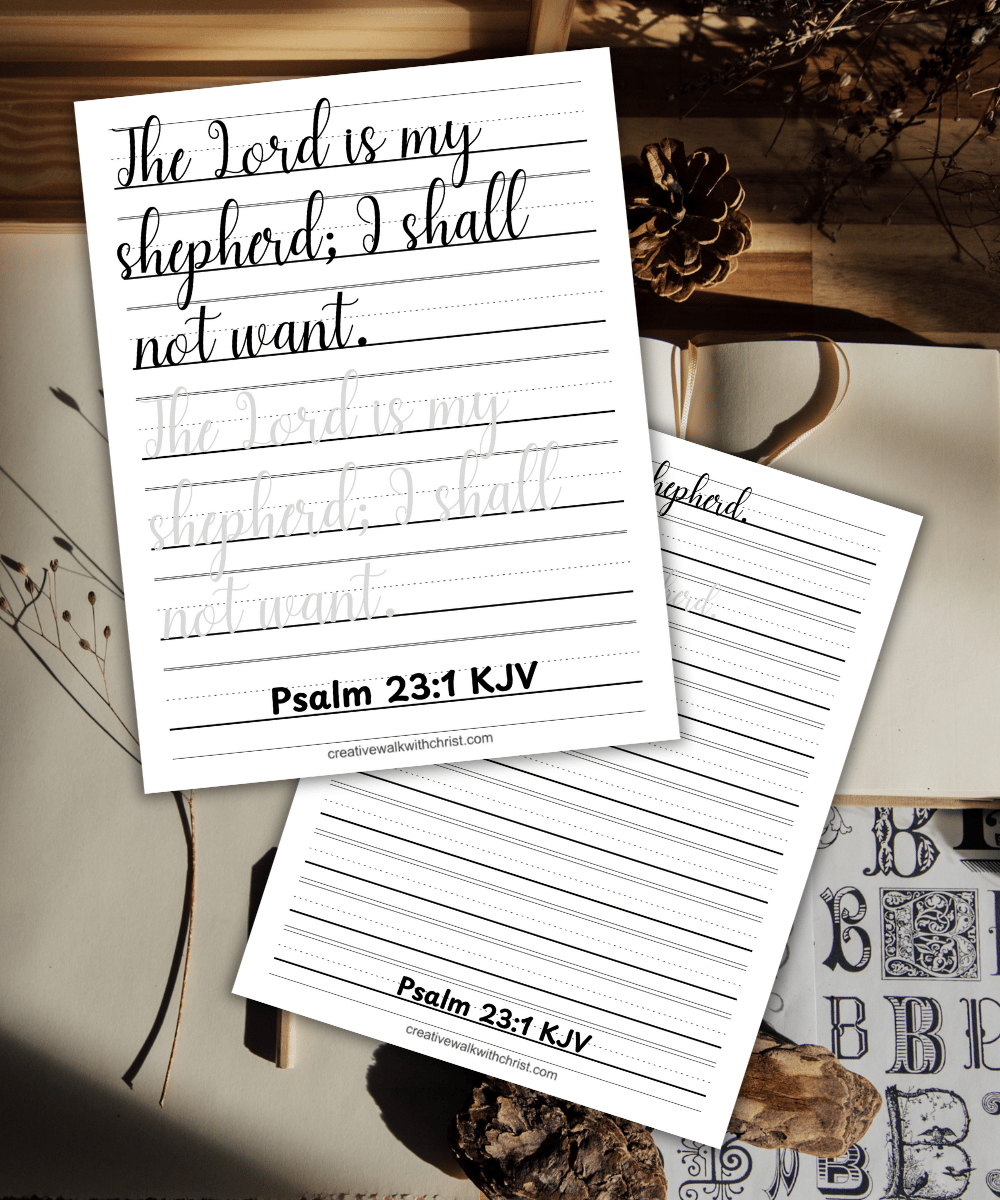 The Lord is my
shepherd; I shall
not want.
The Lord is my
shepherd; I shall
not want.
Psalm 23:1 KJV
creativewalkwithchrist.com
hepherd.
herd.
Psalm 23:1 KJV
creativewalkwithchrist.com
B
B B
B B
B
B